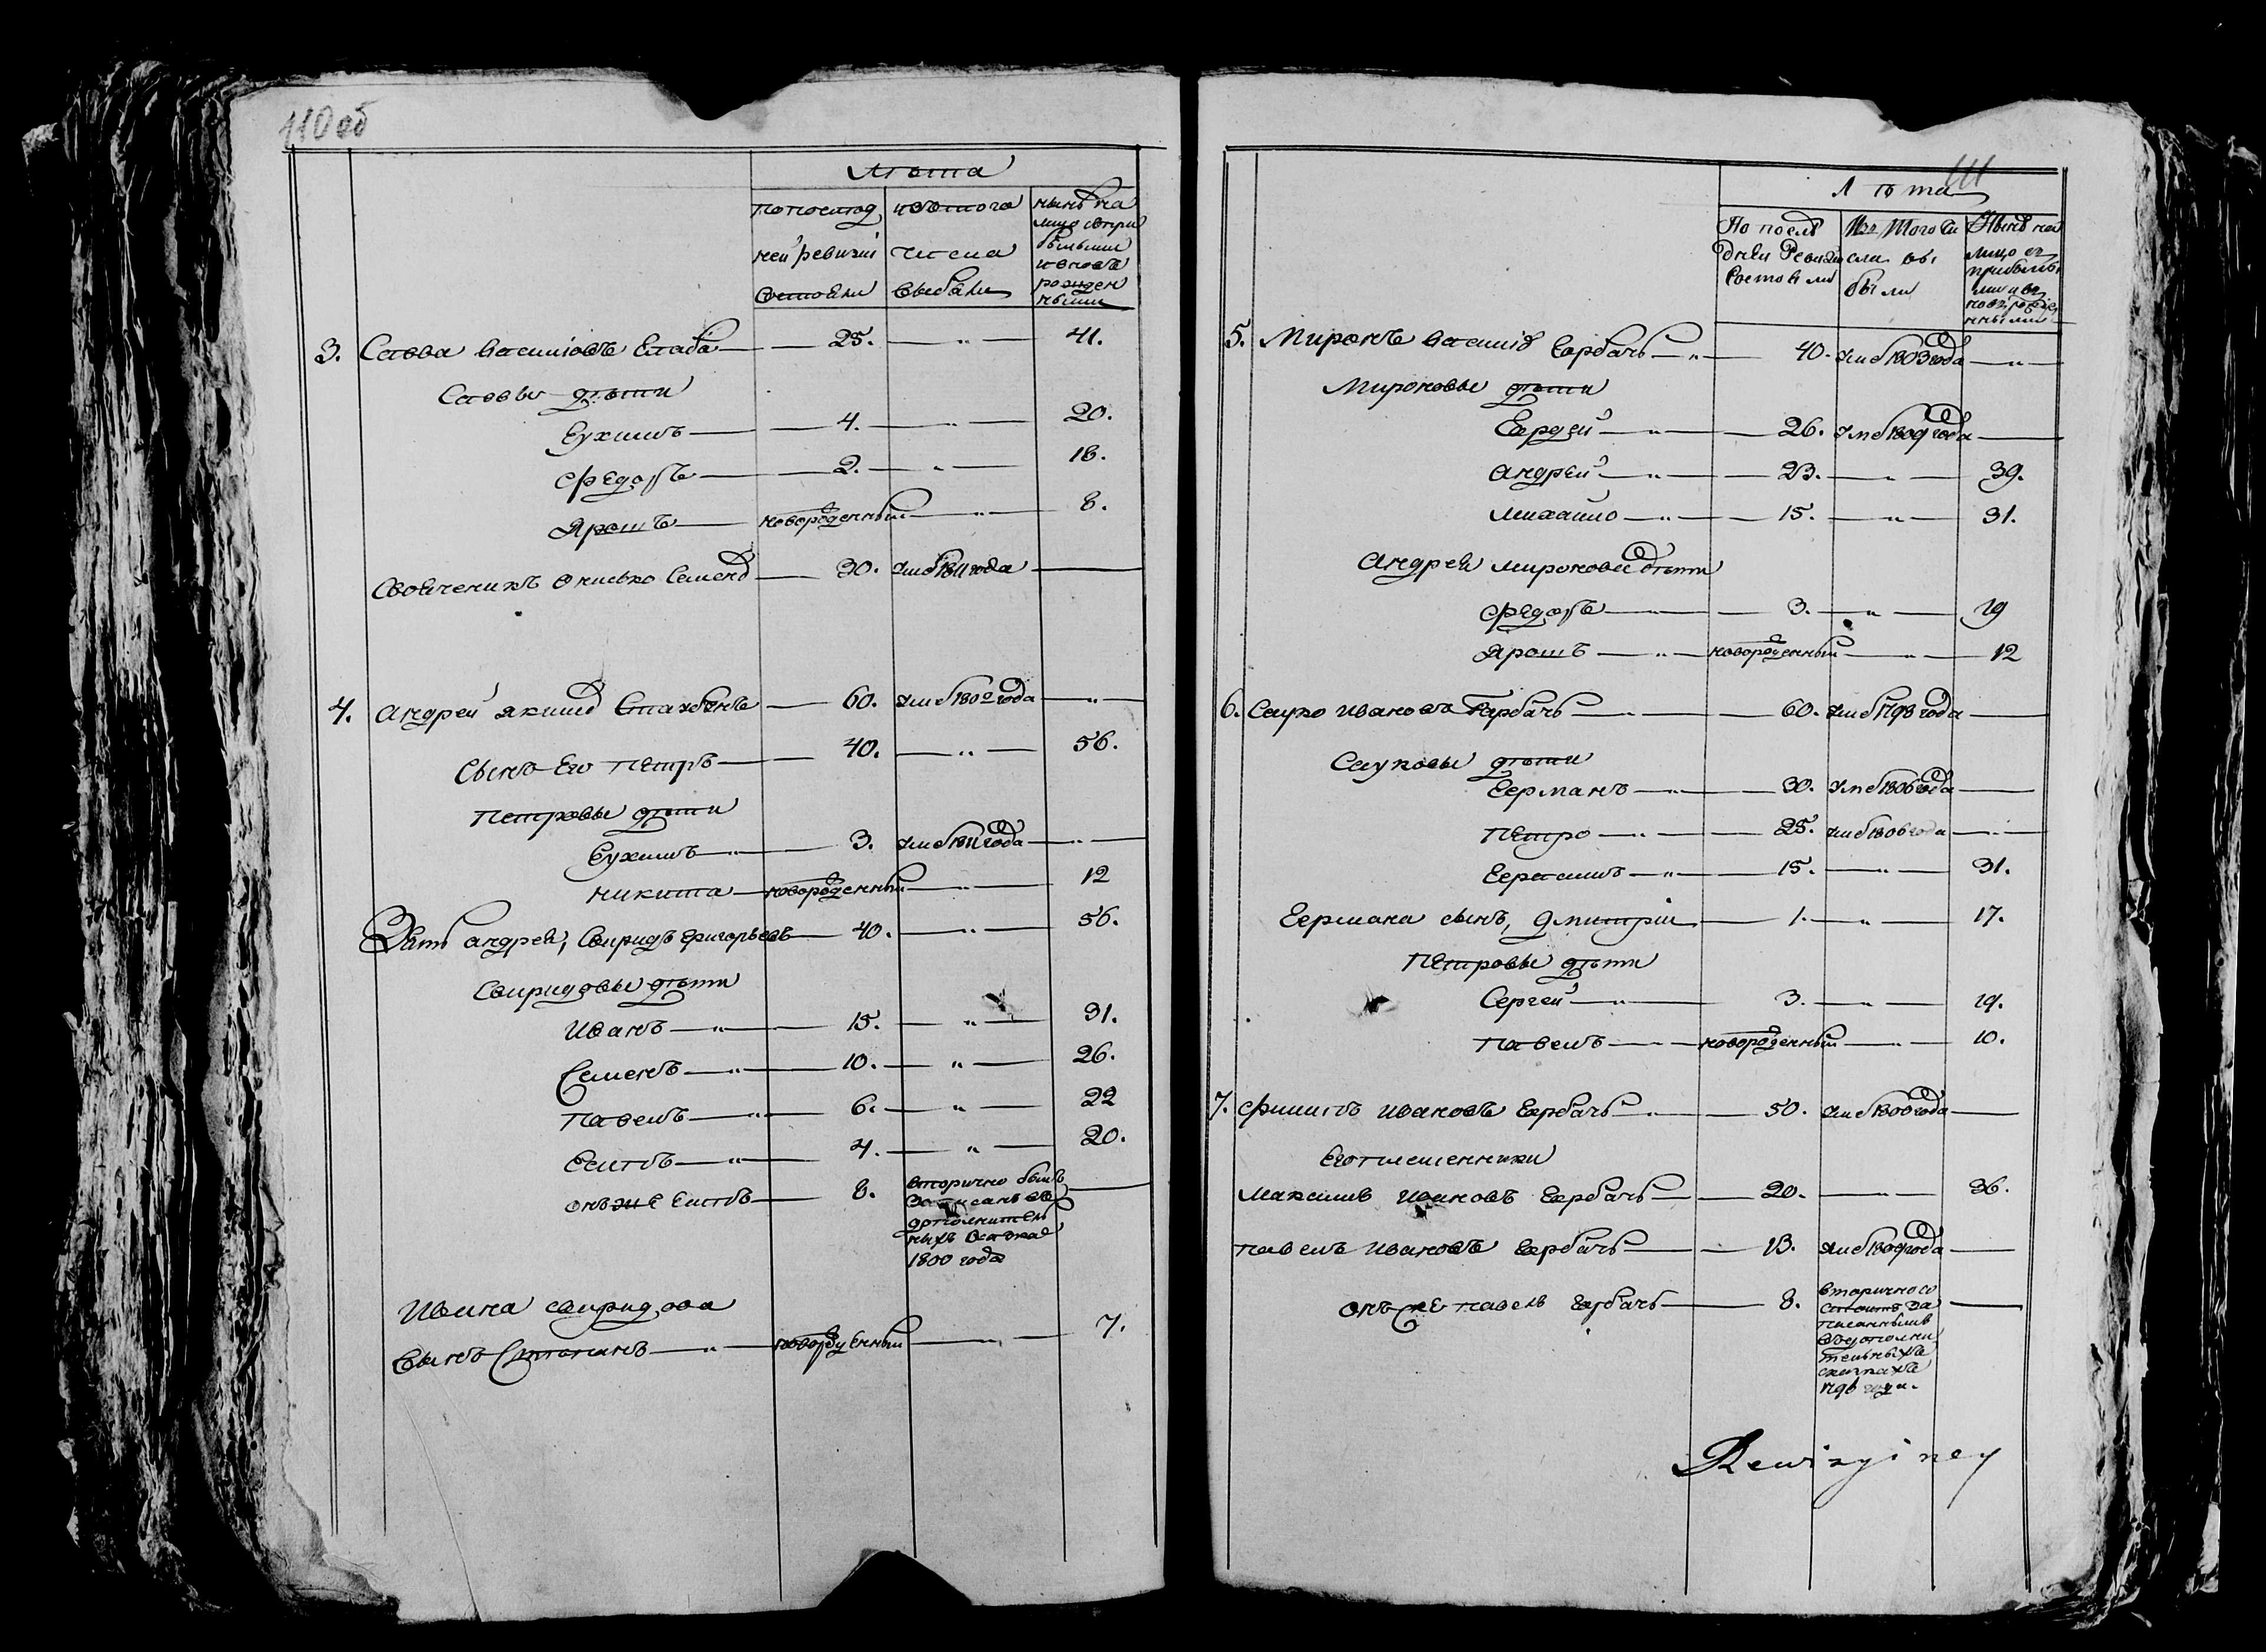 110 об
Лѣта
по послѣд
ней ревизіи
состояли
изъ того
числа
выбыли
нынѣ на
лицо съ при
былыми
и вновь
рожден
ными
3. Савва Василіовъ — 25. — „ — 41.
Саввы дѣти
Еухимъ — 4. — „ — 20.
Федоръ — 2. — „ — 18.
Ярошъ — новорожденный — „ — 8.
Свойченикъ Онисько Семенов — 30. умеръ 1811 года —
4. Андрей Якимов — 60. умеръ 1802 года — „ —
Сынъ Его Петръ — 40. — „ — 56.
Петровы дѣти
Еухимъ — „ — 3. умеръ 1811 года — „ —
Никита — новорожденный — „ — 12
Зять Андрея, Свиридъ Григорьевъ — 40. — „ — 56.
Свиридовы дѣти
Иванъ — „ — 15. — „ — 31.
Семенъ — „ — 10. — „ — 26.
Павелъ — „ — 6. — „ — 22
„ — 4. — „ — 20.
Онъ же — 8. вторично былъ
записанъ въ
дополнитель
ныхъ сказкахъ
1800 года
Ивана Свиридова
Сынъ Степанъ — „ — новорожденный — „ — 7.
111
Лѣта
По послѣ
дней Ревизіи
Состояли
Изъ Того чи
сла вы
были
Нынѣ на
лицо съ
прибылы
ми и въ
новь рожде
нными
5. Миронъ Василів Гарбачъ — „ — 40. умеръ 1803 года — „ —
Мироновы дѣти
Гардѣй — „ — 26. умеръ 1809 года —
Андрей — „ — 23. — „ — 39.
Михайло — „ — 15. — „ — 31.
Андрея Миронова дѣти
Федоръ — 3. — „ — 19
Ярошъ — „ — новорожденный — „ — 12
6. Сауко Ивановъ Гарбачъ — 60. умеръ 1798 года —
Сауковы дѣти
Германъ — „ — 30. умеръ 1806 года —
Петро — „ — 25. умеръ 1806 года — „ —
Герасимъ — „ — 15. — „ — 31.
Германа сынъ, Дмитрій — 1. — „ — 17.
Петровы дѣти
Сергей — „ — 3. — „ — 19.
Павелъ — новорожденный — „ — 10.
7. Филипъ Ивановъ Гарбачъ — „ — 50. умеръ 1800 года —
Его племенники
Максимъ Ивановъ Гарбачъ — 20. — „ — 36.
Павелъ Ивановъ Гарбачъ — 13. умеръ 1809 года —
Онъ же Павелъ Гарбачъ — 8. вторично со
стоитъ за
писаннымъ
въ дополни
тельныхъ
сказкахъ
года.